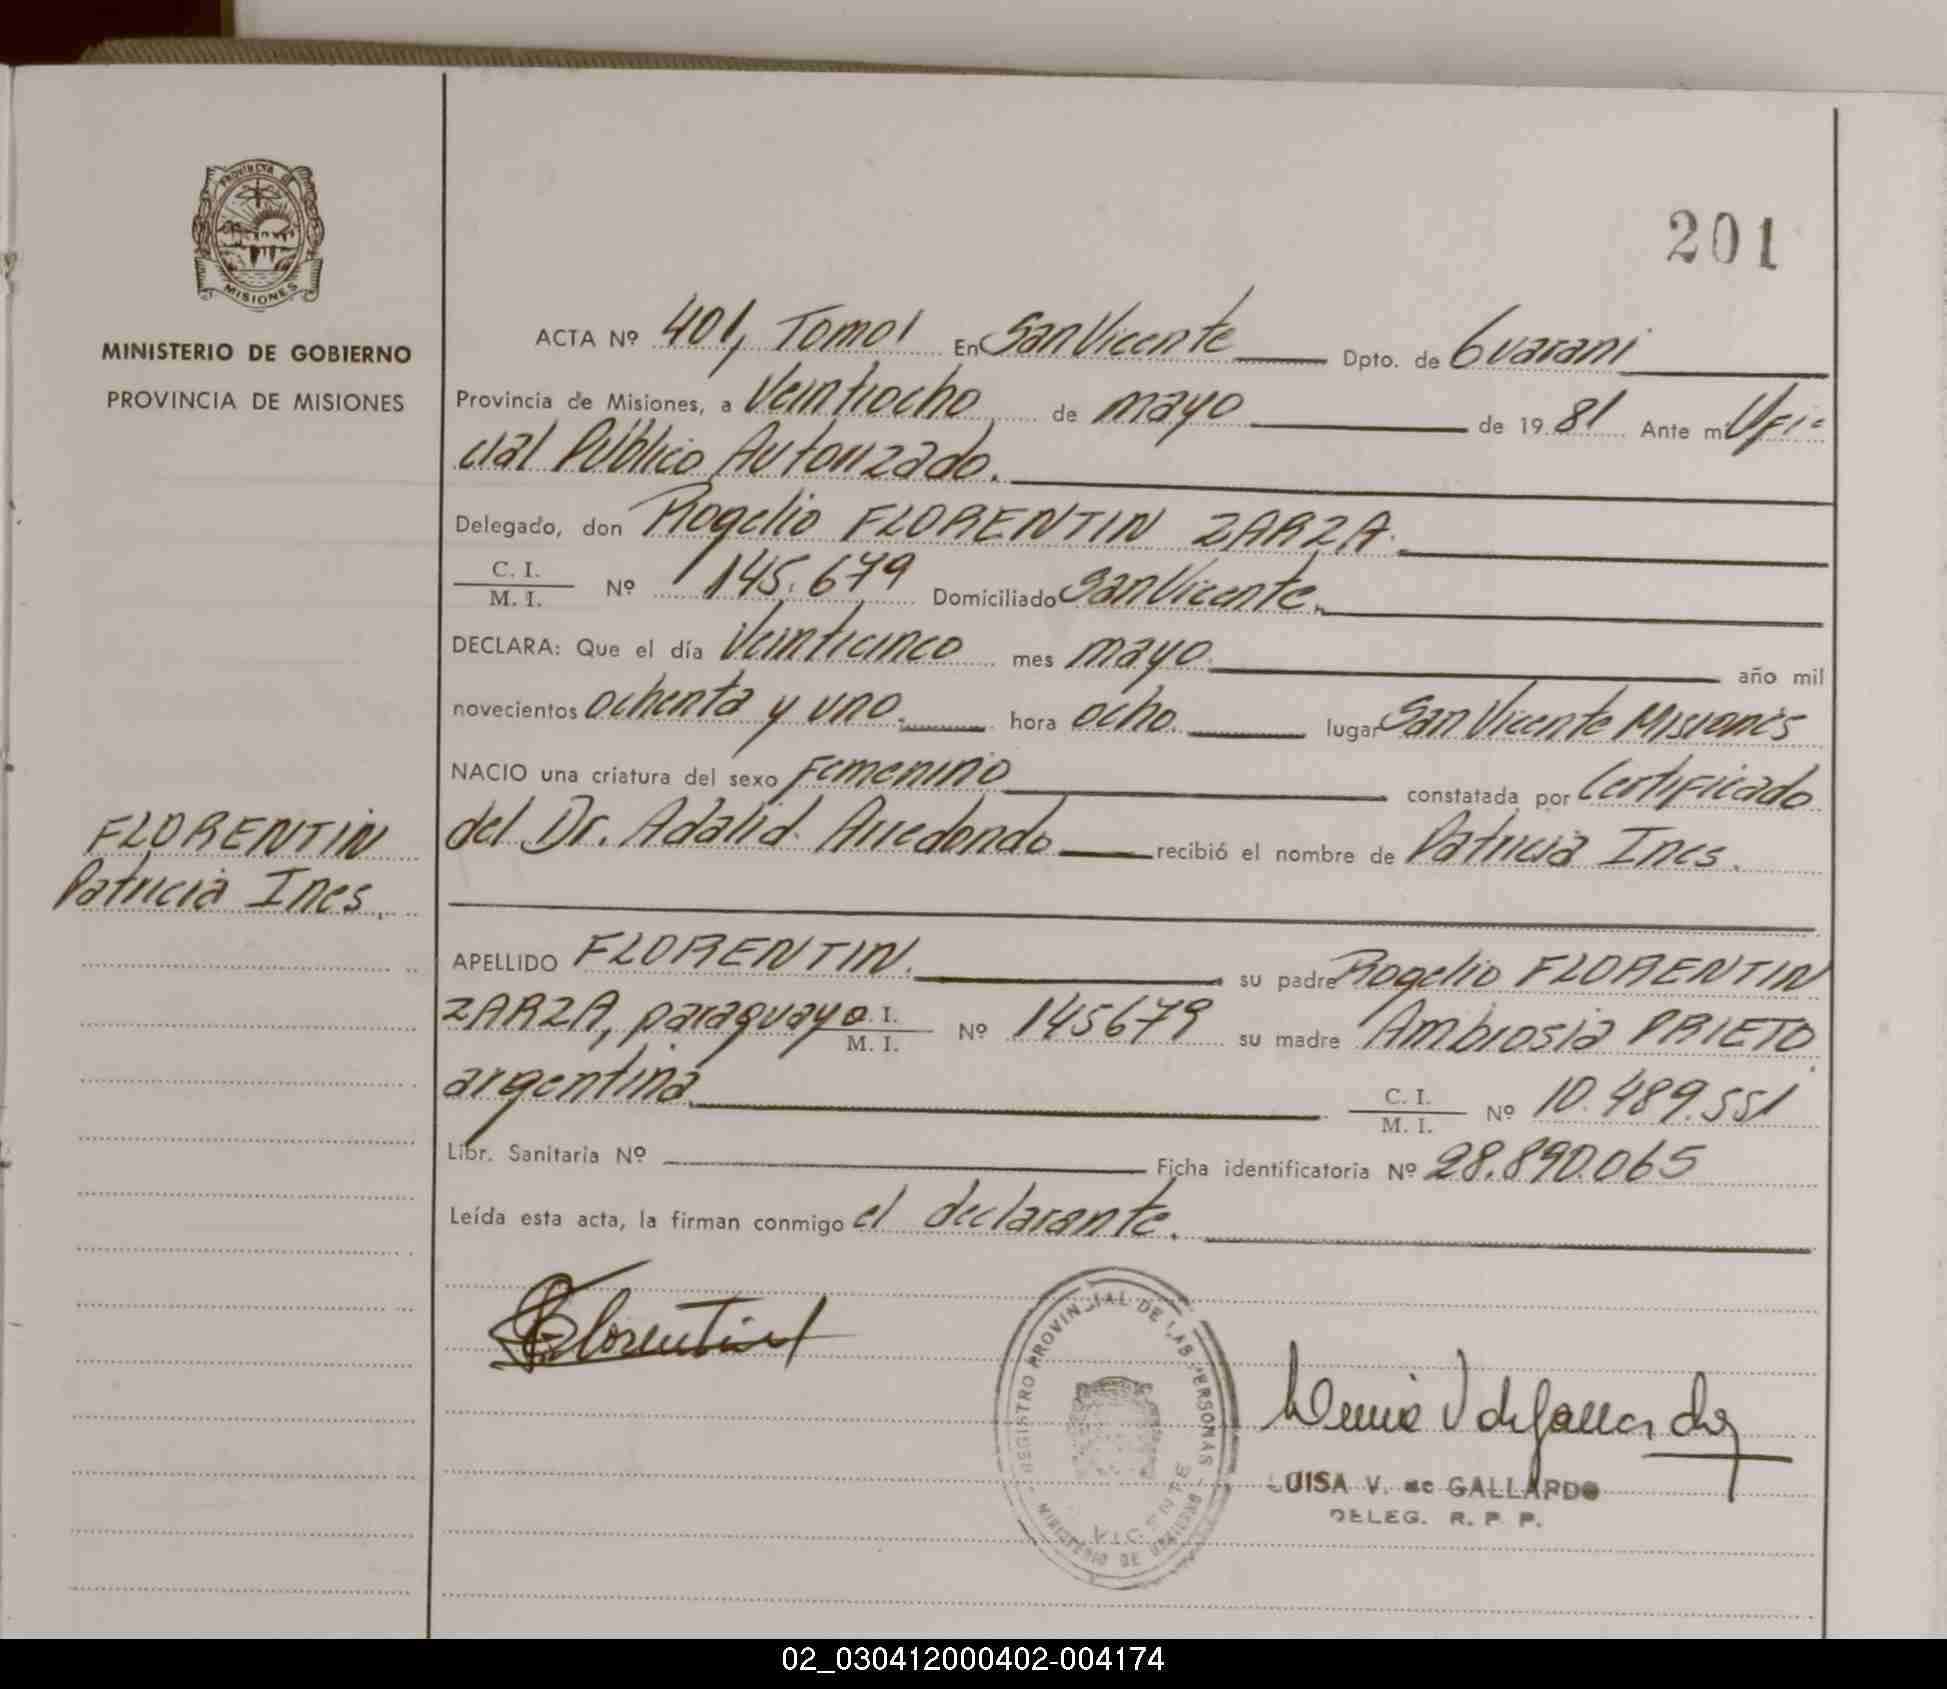 201
PROVINCIA DE
MISIONES
MINISTERIO DE GOBIERNO
PROVINCIA DE MISIONES
FLORENTIN
Patricia Ines.
ACTA Nº 401, Tomo I En San Vicente Dpto. de Guarani
Provincia de Misiones, a Veintiocho de mayo de 1981 Ante mi Ofi-
cial Público Autorizado.
Delegado, don Rogelio FLORENTIN ZARZA.
C. I.
M. I. Nº 145.679 Domiciliado San Vicente.
DECLARA: Que el día Veinticinco mes mayo. año mil
novecientos ochenta y uno. hora ocho. lugar San Vicente Misiones
NACIO una criatura del sexo Femenino constatada por Certificado
del Dr. Adalid Arredondo recibió el nombre de Patricia Ines.
APELLIDO FLORENTIN. su padre Rogelio FLORENTIN
ZARZA, paraguayo C. I.
M. I. Nº 145679 su madre Ambrosia PRIETO
argentina C. I.
M. I. Nº 10.489.551
Libr. Sanitaria Nº Ficha identificatoria Nº 28.890.065
Leída esta acta, la firman conmigo el declarante.
Florentin
REGISTRO PROVINCIAL DE LAS PERSONAS
MINISTERIO DE GOBIERNO
VICENTE
LUISA V. de GALLARDO
DELEG. R. P. P.
02_030412000402-004174